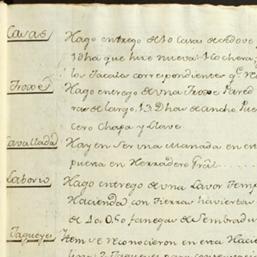 Casas Hago entrego de 10 Casas de
1 Dha que hize nueva: 1 Cochera
los Jacales correspondientes q.e
Troxe Hago entrego de una Troxe Pared
ras de largo, 13 Dhas de ancho Pue
cero Chapa y Llave
Cavallada Hay en ser una Manada en
puena en Herradero Gral.
Laborio Hago entrego de una Lavor Temp
Hacienda con tierras havierta
de 10.050 fanegas de Sembradu
Jagueyes Item se reconocieron en esta Hacie